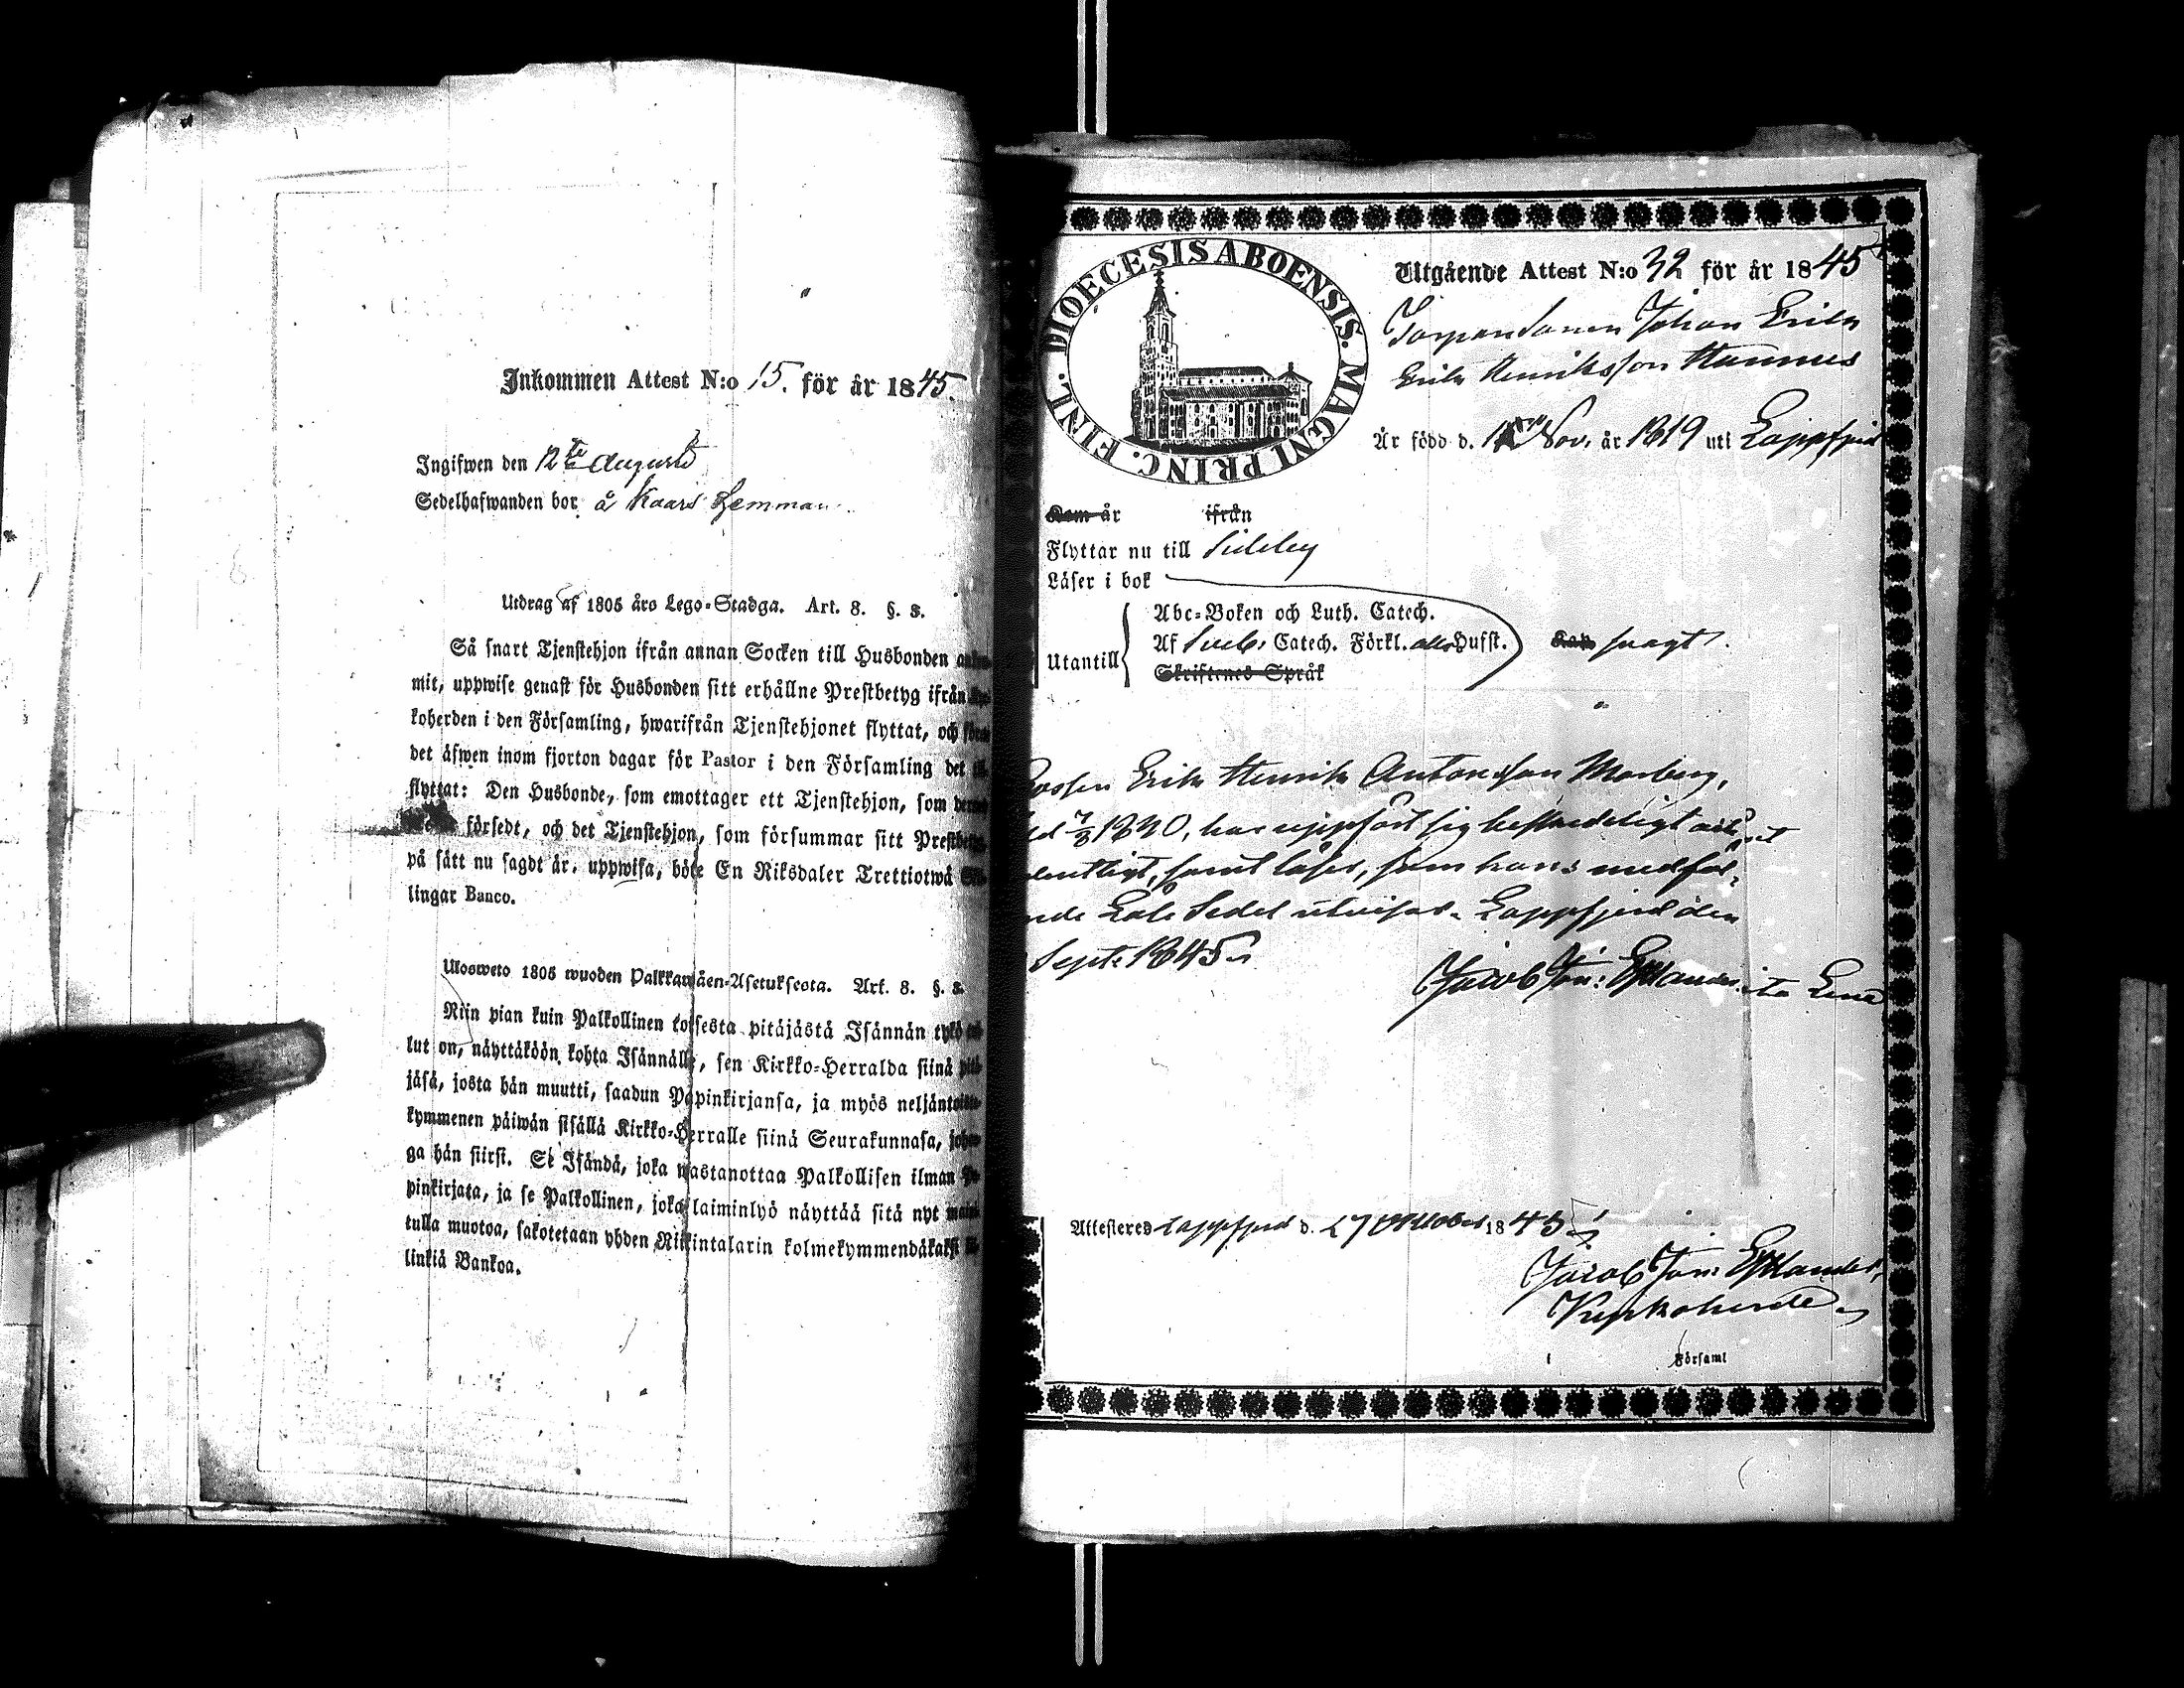 Inkommen Attest N:o 15. för år 1845.
Ingifwen den 12te Augusti
Sedelhafwanden bor å Kaars Hemman
Utdrag af 1805 års Lego-Stadga. Art. 8. §. 3.
Så snart Tjenstehjon ifrån annan Socken till Husbonden
mit, uppwise genast för Husbonden sitt erhållne Prestbetyg ifrån
koherden i den Församling, hwarifrån Tjenstehjonet flyttat, och
det äfwen inom fjorton dagar för Pastor i den Församling det
flyttat: Den Husbonde, som emottager ett Tjenstehjon, som
försedt, och det Tjenstehjon, som försummar sitt
på sätt nu sagdt är, uppwisa, böte En Riksdaler Trettiotwå
lingar Banco.
Ulosweto 1805 wuoden Palkkawäen-Asetuksesta. Art. 8. §. 3.
Niin pian kuin Palkollinen toisesta pitäjästä Isännän tykö
lut on, näyttäköön kohta Isännälle, sen Kirkko-Herralda siinä
jäsä, josta hän muutti, saadun Papinkirjansa, ja myös
kymmenen päiwän sisällä Kirkko-Herralle siinä Seurakunnasa,
ga hän siirsi. Se Isändä, joka wastanottaa Palkollisen ilman
pinkirjata, ja se Palkollinen, joka laiminlyö näyttää sitä nyt
tulla muotoa, sakotetaan yhden Riikintalarin kolmekymmendäkaksi
linkiä Bankoa.
DIOECESIS ABOENSIS. MAGNI PRINC. FINL.
Utgående Attest N:o 32 för år 1845
Torparesonen Johan Erik
Erik Henriksson Hannus
Är född d. Nov. år 1819 uti Lappfjerd
Kom år ifrån
Flyttar nu till Sideby
Läser i bok
Utantill
Abc-Boken och Luth. Catech.
Af Sveb. Catech. Förkl. alla Hufst.
Skriftenes Språk
Kan svagt.
Erik Henrik Antonsson Morberg,
1820, har uppfört sig beskedeligt och
samt läser, som hans medföl-
Sedel utvisar. Lappfjerd den
Sept. 1845.
Jacob Joh:
Attesteres Lappfjerd d. 27 October 1845
Jacob Joh:
Kyrkoherde
i Församl